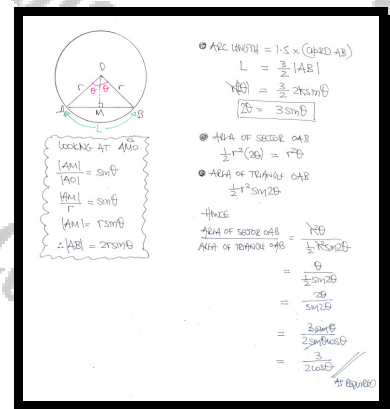 O
r
θ θ
r
A
M
B
L
LOOKING AT AMO
|AM|/|AO| = sinθ
|AM|/r = sinθ
|AM| = rsinθ
∴ |AB| = 2rsinθ
● ARC LENGTH = 1.5 × (CHORD AB)
L = 3/2 |AB|
r(2θ) = 3/2 2rsinθ
2θ = 3sinθ
● AREA OF SECTOR OAB
1/2 r²(2θ) = r²θ
● AREA OF TRIANGLE OAB
1/2 r² sin2θ
HENCE
AREA OF SECTOR OAB / AREA OF TRIANGLE OAB = r²θ / 1/2 r² sin2θ
= θ / 1/2 sin2θ
= 2θ / sin2θ
= 3sinθ / 2sinθcosθ
= 3 / 2cosθ
AS REQUIRED